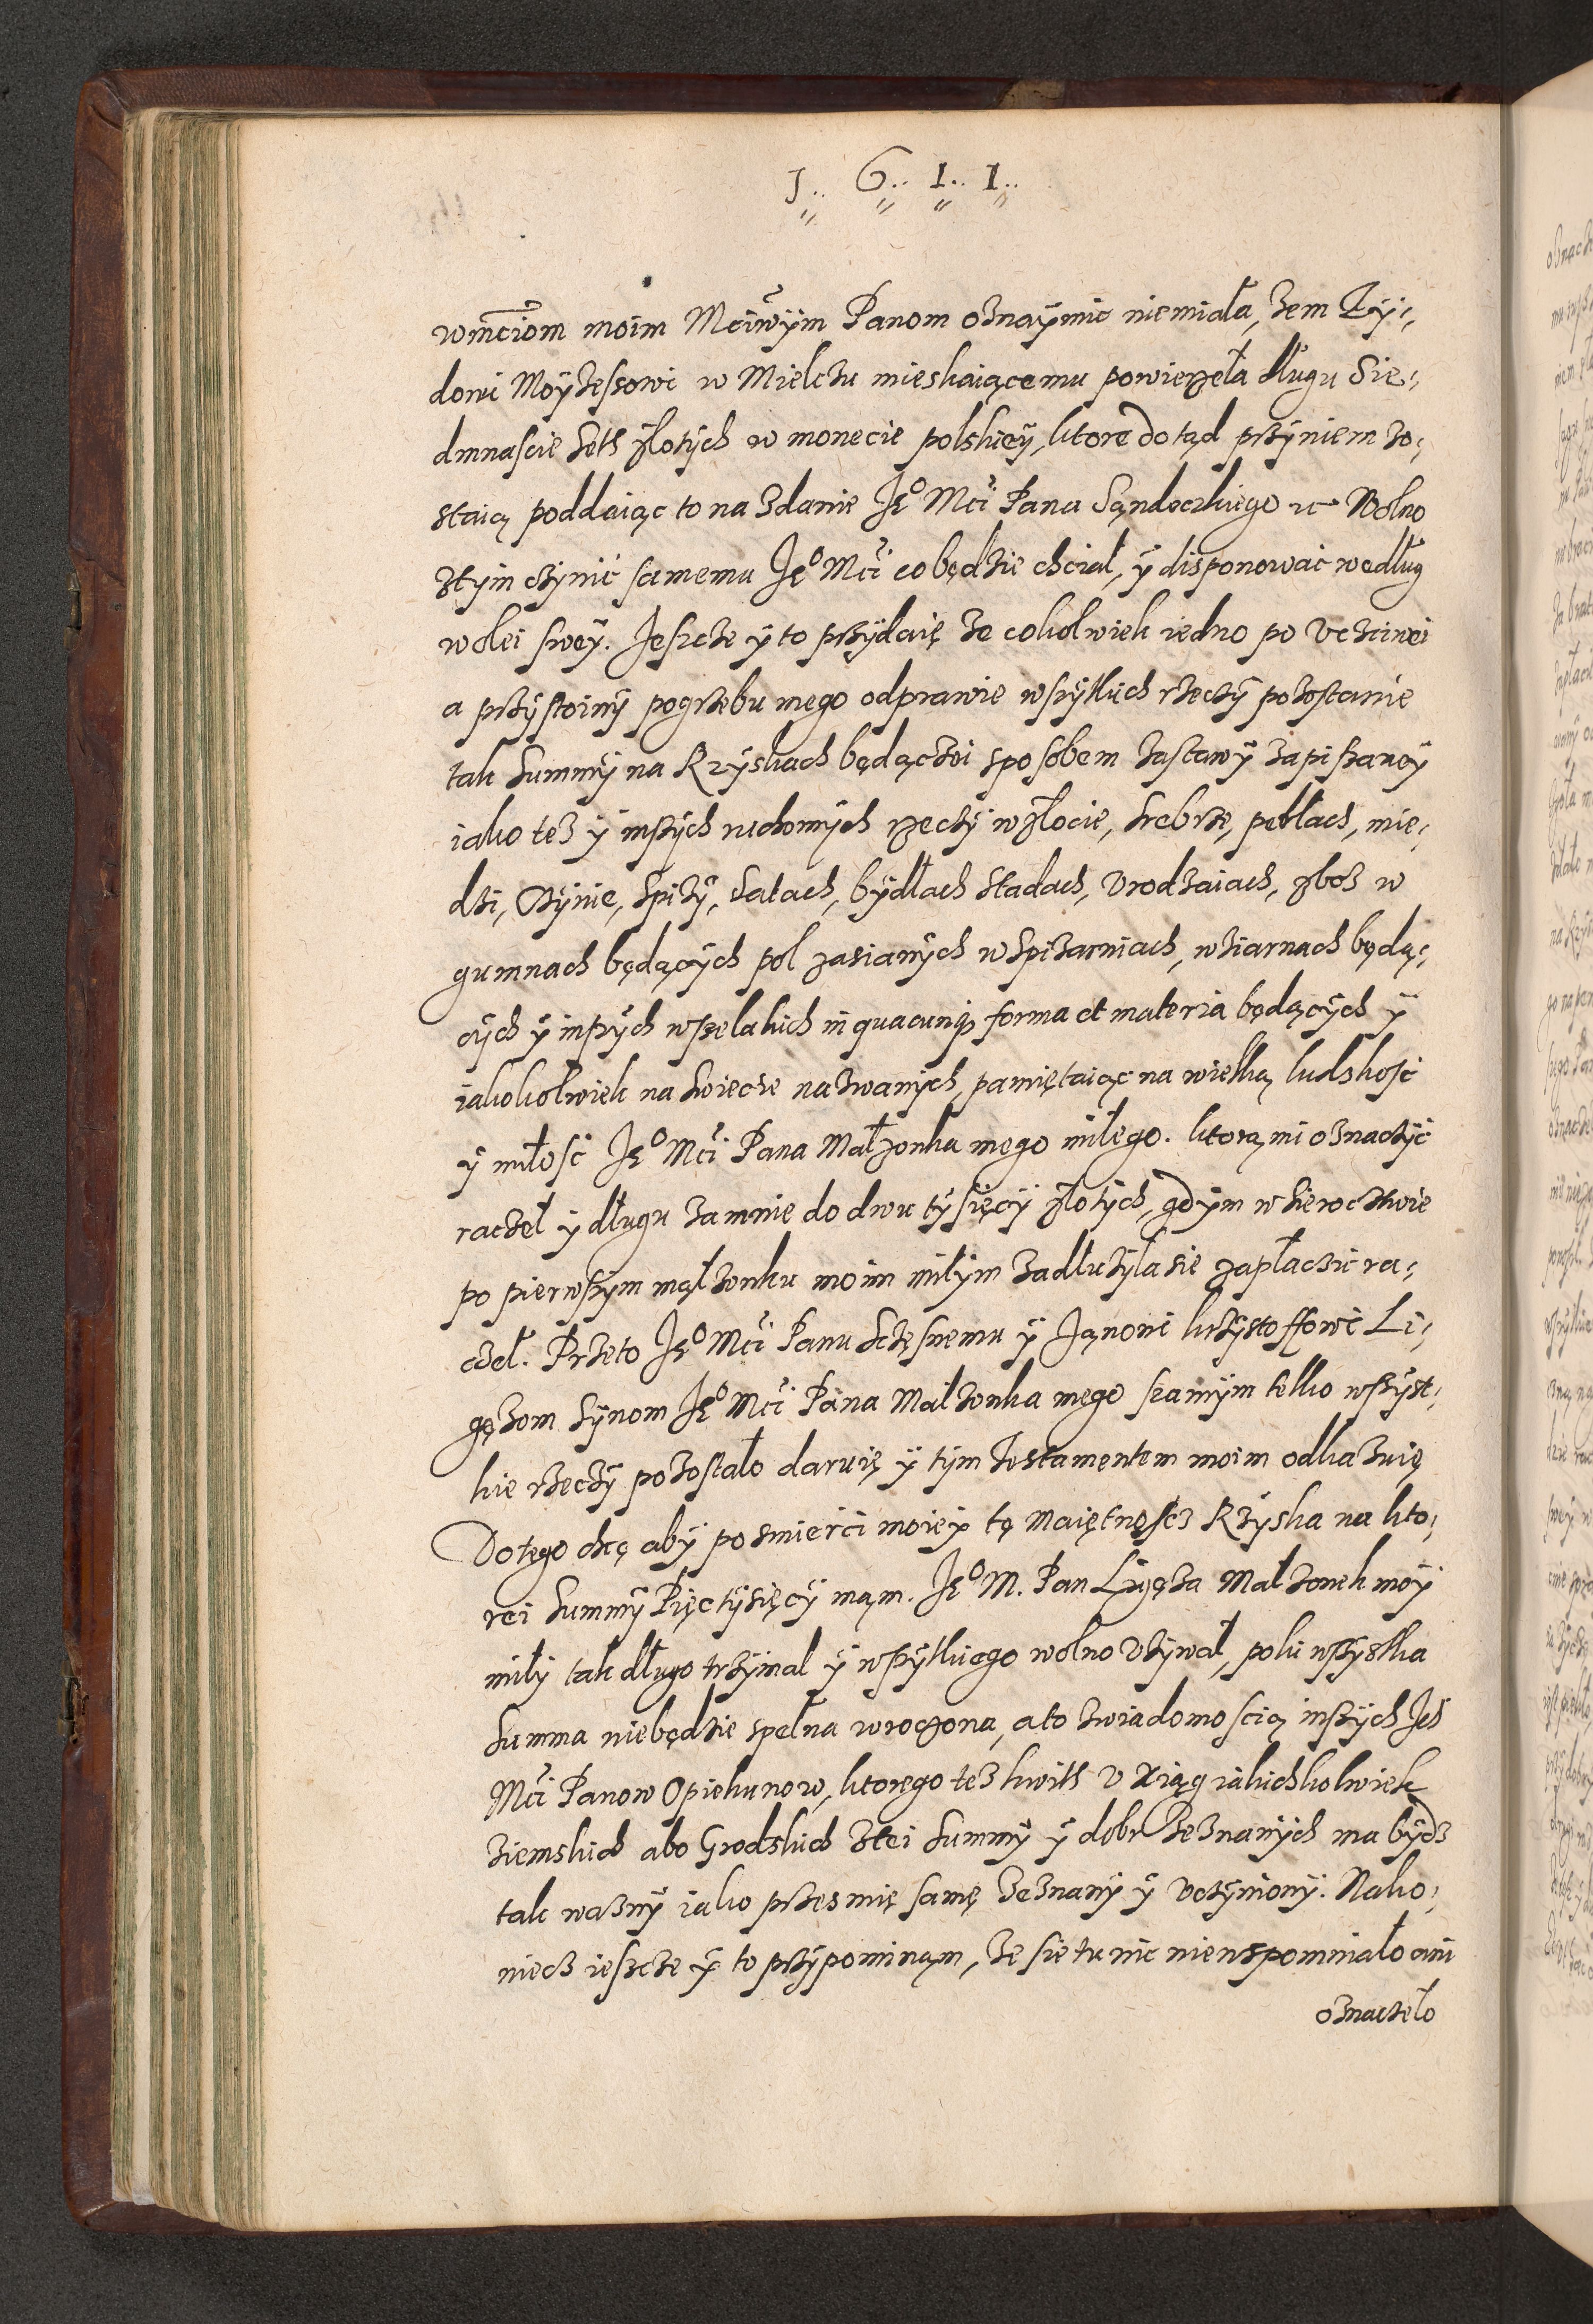 1. 6. 1. 1.
wmciom moim Mciwÿm Panom oznaÿmic niemiała, żem Żÿ-
dowi Moÿżessowi w Mielczu mieskaiącemu powierzeła długu Sie-
dmnascie seth złotÿch w monecie polskieÿ, ktore dotąd przÿniem zo-
staią poddaiąc to na zdanie Je° Mci Pana Sąndeczkiego etc Wolno
ztÿm czÿnić samemu Je° Mci co będzie chciał, ÿ disponować według
wolei sweÿ. Jeszcze ÿ to przÿdaię że cokolwiek iedno po Vcziwei
a przÿstoinÿ pogrzebu mego odprawie wszÿtkich rzeczÿ pozostanie
tak summÿ na Rzÿskach będączei sposobem zastawÿ zapisaneÿ
iako tez ÿ inszÿch ruchomÿch rzeczÿ w złocie, srebrze, perłach, mie-
dzi, Czÿnie, spiżÿ, Satach, bÿdłach stadach, Vrodzaiach, zboz w
gumnach będącÿch pol zasianÿch w spizarniach, w ziarnach będą-
cÿch ÿ inszÿch wszelakich in quacunq; forma et materia będącÿch ÿ
iakokolwiek na swiecie nazwanÿch, pamiętaiąc na wielką ludskość
ÿ miłość Je° Mci Pana Małzonka mego miłego. ktorą mi oznaczÿć
raczeł ÿ długu za mnie do dwu tÿsięcÿ złotÿch, gdÿm w sieroctwie
po pierwszÿm małżonku moim miłÿm zadłużÿła sie zapłaczić ra-
czeł. Przeto Je° Mci Panu Sczęsnemu ÿ Janowi krzÿstoffowi Li-
gęzom Sÿnom Je° Mci Pana Małżonka mego seamÿm telko wszÿst-
kie rzeczÿ pozostało daruię ÿ tÿm Testamentem moim odkazuię
Do tego chcę abÿ po smierci moieÿ tę maiętnosz Rzÿska na kto-
rei summÿ Pięctÿsięcÿ mąm. Je° M. Pan Ligęza Małżonek moÿ
miłÿ tak długo trzÿmał ÿ wszÿtkiego wolno Vżÿwał, poki wszÿstka
summa niebędzie spełna wroczona, a to z wiadomoscią inszÿch Jch
Mci Panow Opiekunow, ktorego tez kwith v xiąg iakichkolwiek
ziemskich abo Grodskich ztei summÿ ÿ dobr zeznanÿch ma bÿdz
tak waznÿ iako przes mię samę zeznanÿ ÿ Vczÿnionÿ. Nako-
niecz ieszcze ÿ to przÿpominąm, że sie tu nic niewspomniało ani
oznaczeło